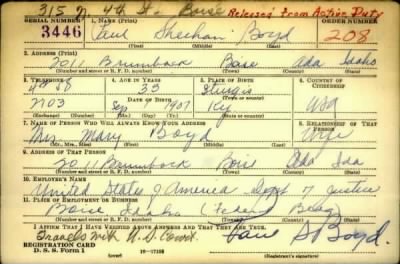 315 N. 4th St. Boise Released from Action Duty
SERIAL NUMBER 1. Name (Print) ORDER NUMBER
3446 Paul Sheehan Boyd 208
(First) (Middle) (Last)
2. Address (Print)
2011 Brumback Boise Ada Idaho
(Number and street or R. F. D. number) (Town) (County) (State)
3. Telephone 4. Age in Years 5. Place of Birth 6. Country of Citizenship
33 Sturgis
2703 Sep 1 1907 Ky USA
(Exchange) (Number) (Mo.) (Day) (Yr.) (State or country)
7. Name of Person Who Will Always Know Your Address 8. Relationship of That Person
Mrs. Mary Boyd Wife
(Mr., Mrs., Miss) (First) (Middle) (Last)
9. Address of That Person
2011 Brumback Boise Ada Ida
(Number and street or R. F. D. number) (Town) (County) (State)
10. Employer's Name
United States of America Dept of Justice
11. Place of Employment or Business
Boise Idaho (Federal Bldg)
(Number and street or R. F. D. number) (Town) (County) (State)
I Affirm That I Have Verified Above Answers and That They Are True.
Travels with U.S. Court. Paul S Boyd
REGISTRATION CARD
D. S. S. Form 1 (over) 16—17105 (Registrant's signature)